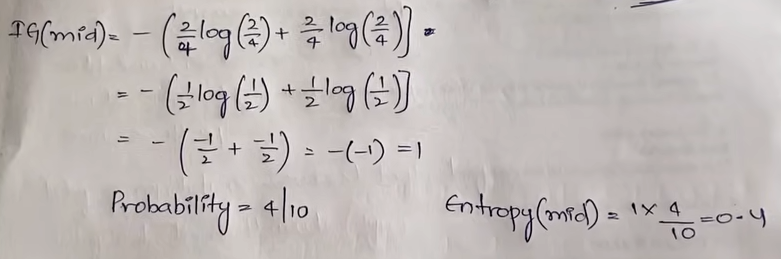 IG(mid) = - (2/4 log(2/4) + 2/4 log(2/4)]
= - (1/2 log(1/2) + 1/2 log(1/2)]
= - (-1/2 + -1/2) = -(-1) = 1
Probability = 4/10 Entropy(mid) = 1 x 4/10 = 0.4